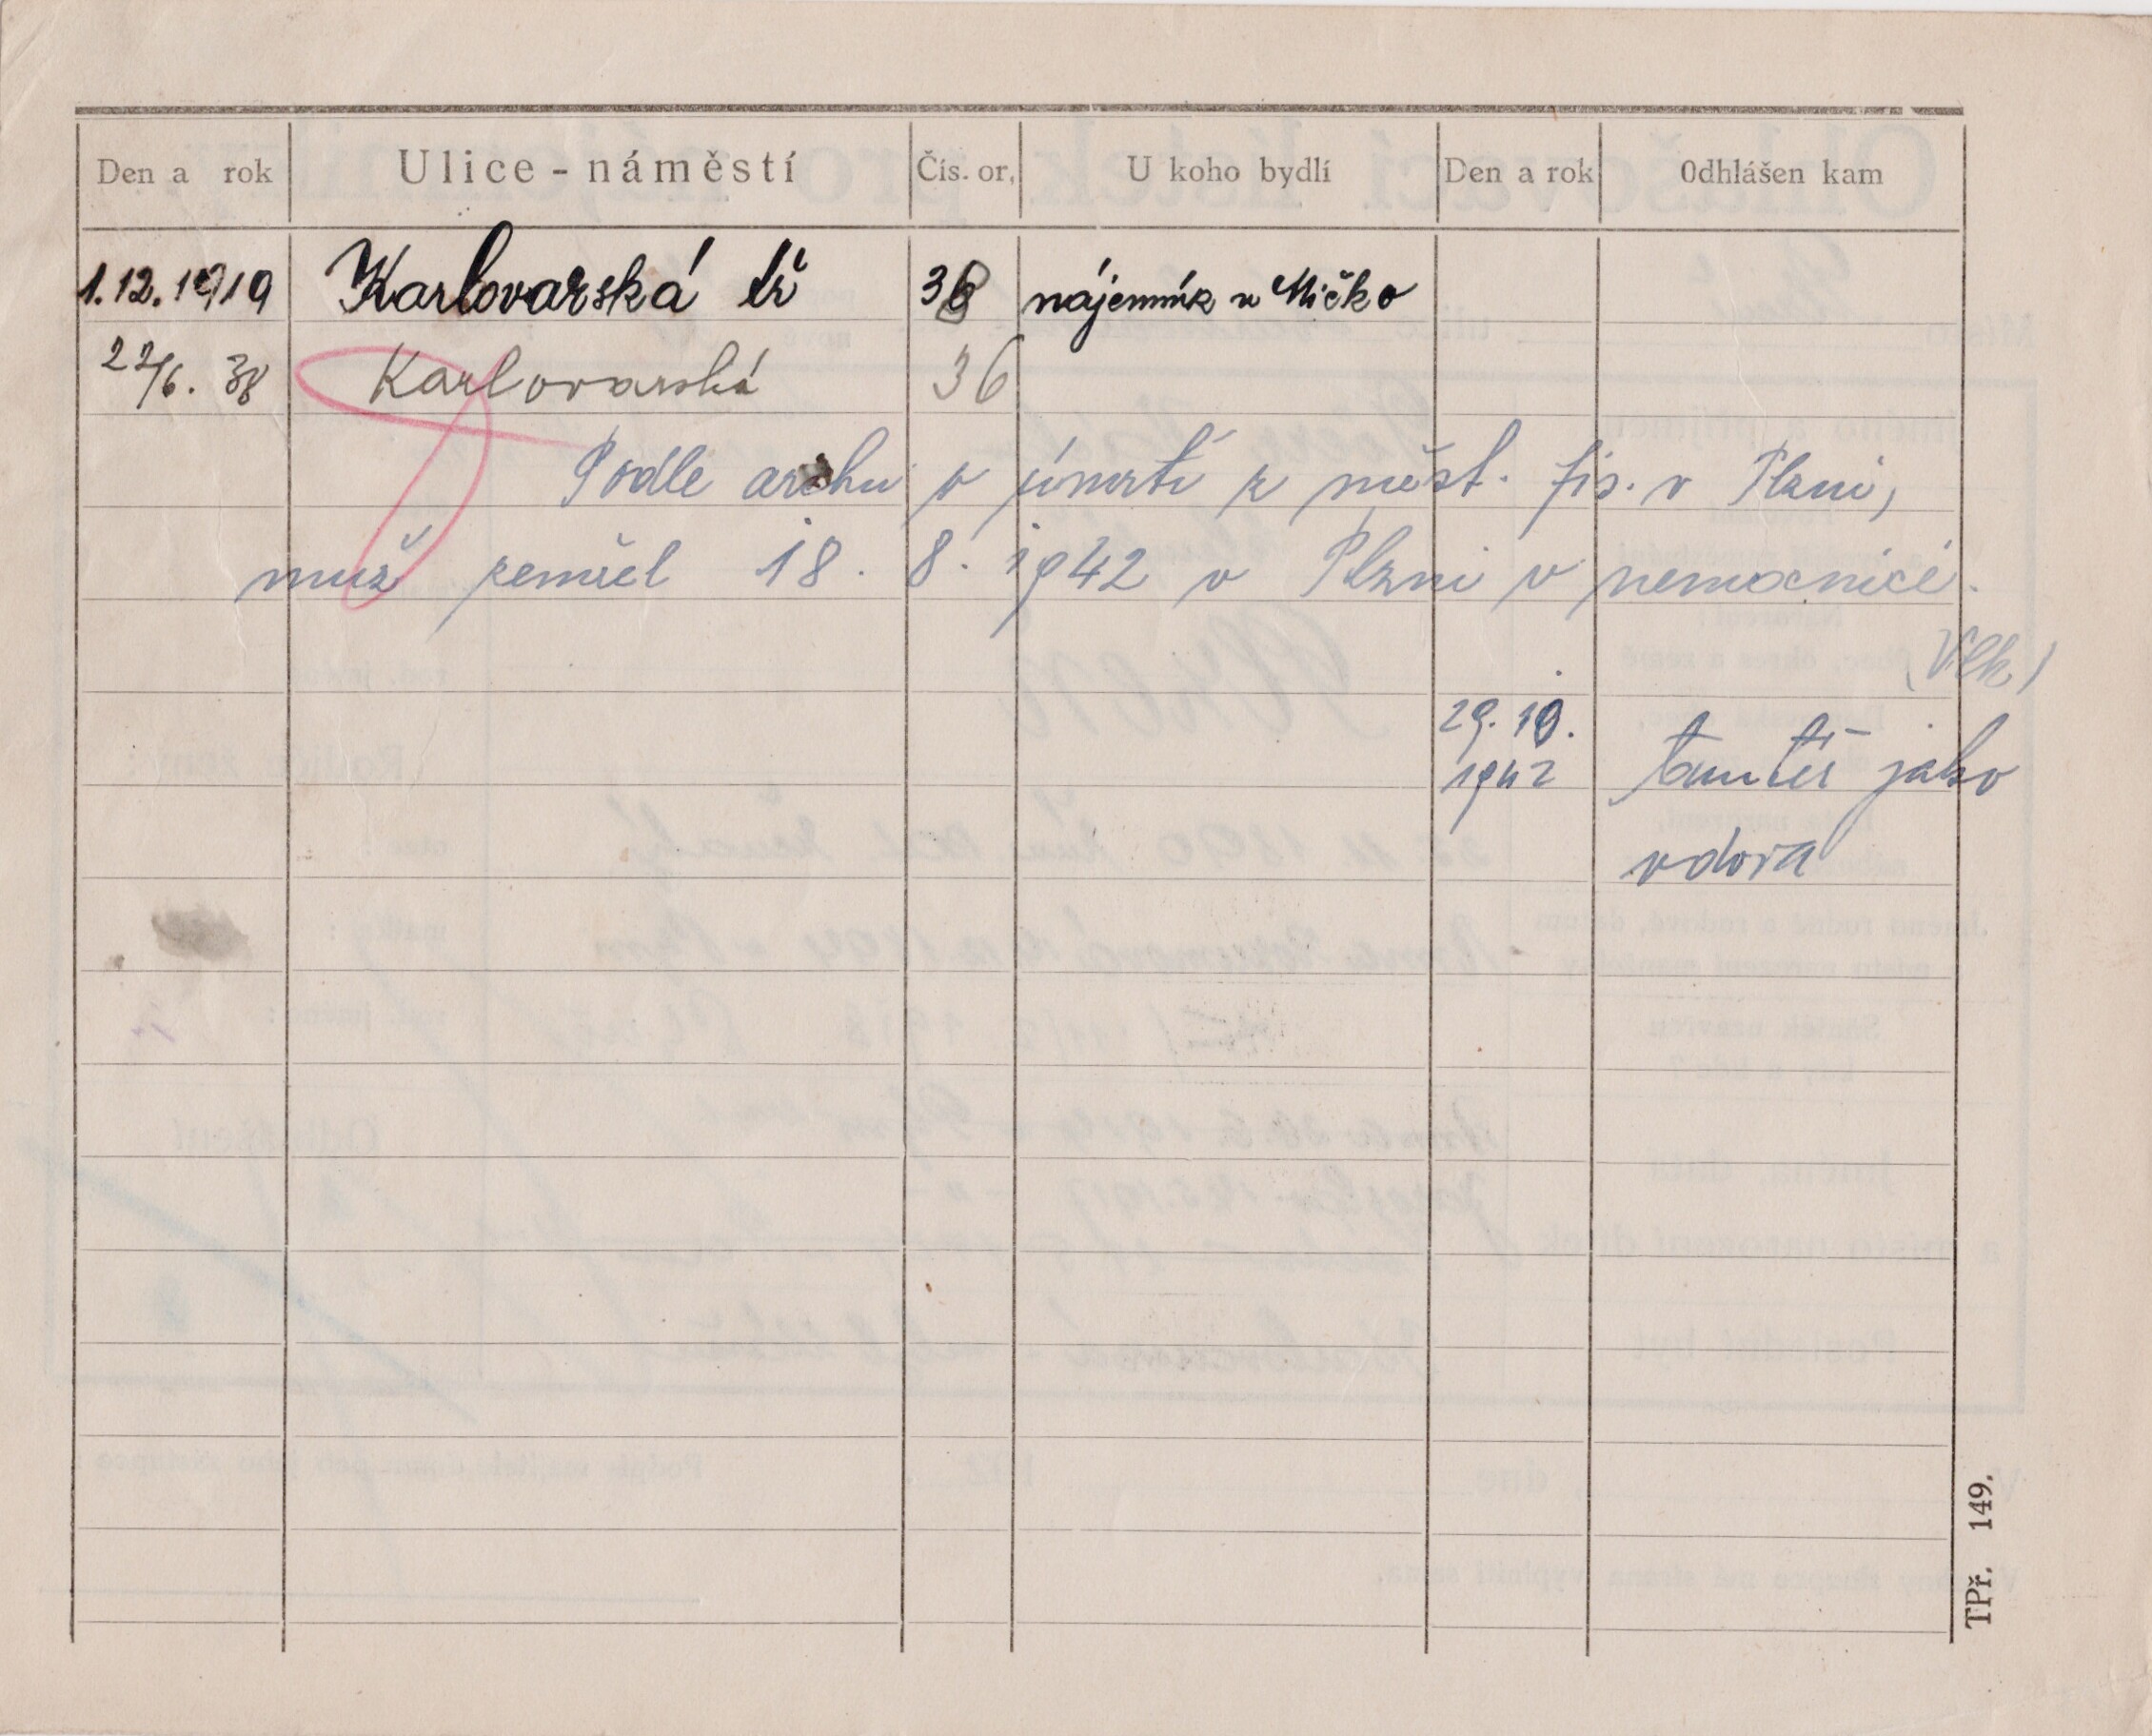 Den a rok Ulice - náměstí Čís. or. U koho bydlí Den a rok Odhlášen kam
1.12.1919 Karlovarská tř 38 nájemník u Mičko
22/6. 38 Karlovarská 36
Podle archu o úmrtí z měst. fis. v Plzni,
muž zemřel 18. 8. 1942 v Plzni v nemocnici.
(Vlk)
29. 10.
1942 tamtéž jako
vdova
TPř. 149.